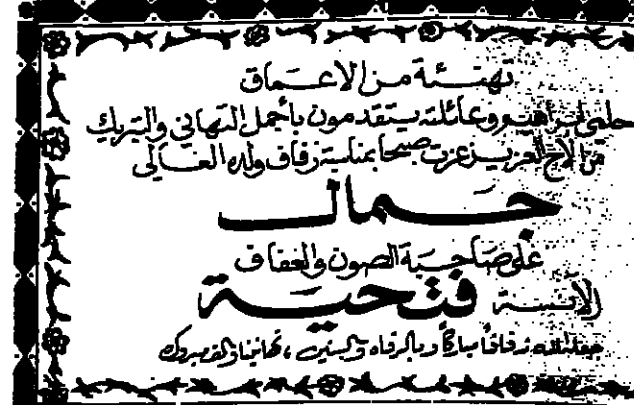 تهنئة من الاعماق
حلمي ابراهيم وعائلته يتقدمون بأجمل التهاني والتبريك
من الاخ العزيز عزت صبحا بمناسبة زفاف ولده الغالي
جمال
على صاحبة الصون والعفاف
الآنسة فتحية
جعله الله زفافاً مباركاً وبالرفاه والبنين، تهانينا والف مبروك